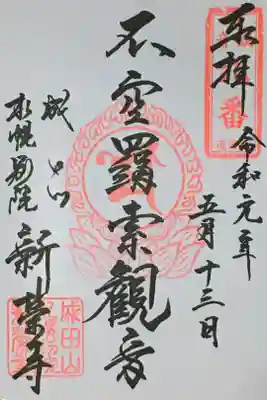 奉拝
令和元年
五月十三日
不空羂索観音
成田山
札幌別院
新榮寺
番
成田山